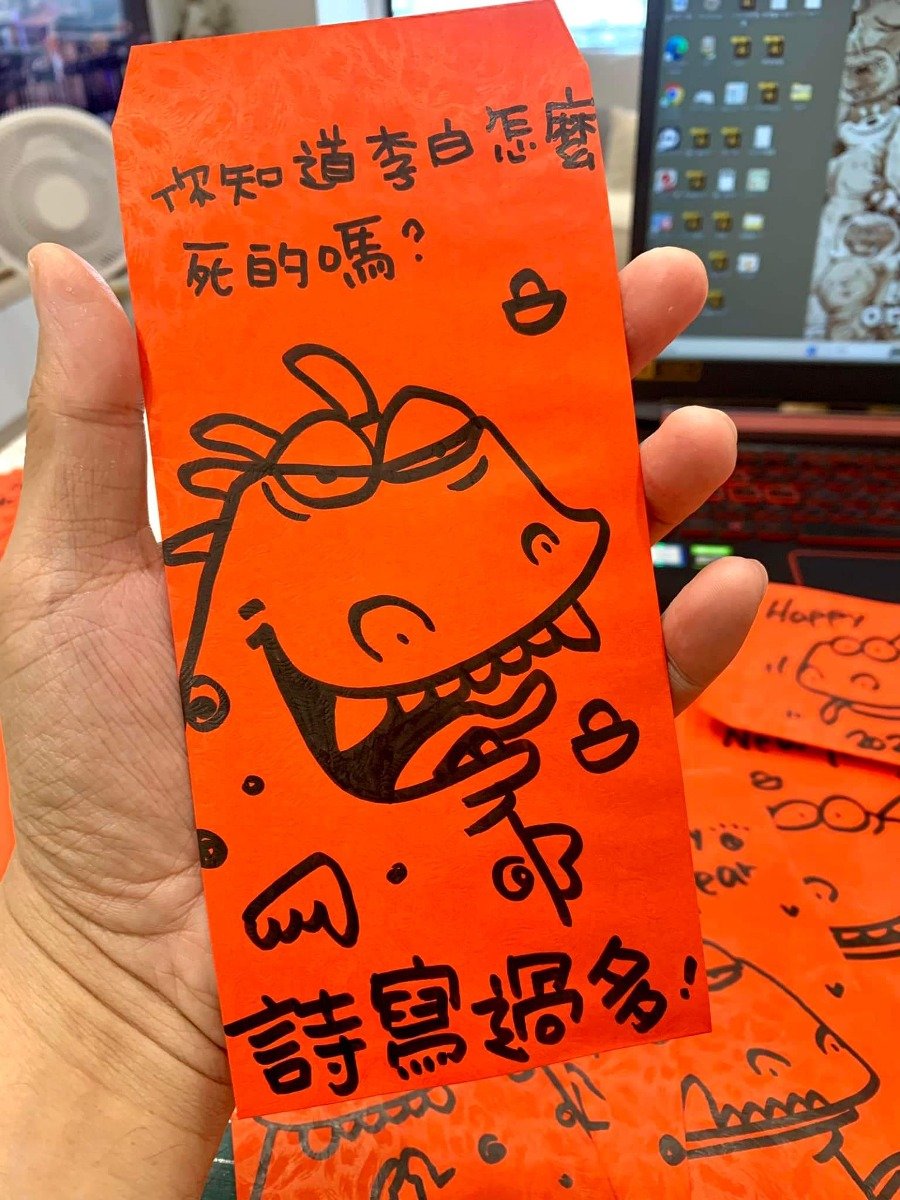 你知道李白怎麼
死的嗎?
詩寫過多!
Happy
202
New
ear